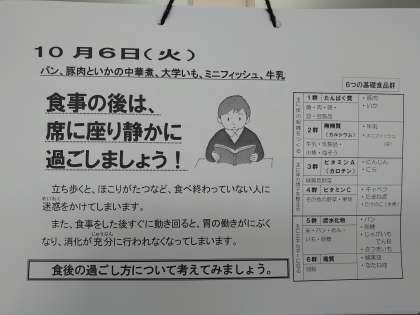 10月6日(火)
パン、豚肉といかの中華煮、大学いも、ミニフィッシュ、牛乳
食事の後は、
席に座り静かに
過ごしましょう！
立ち歩くと、ほこりがたつなど、食べ終わっていない人に
めいわく
迷惑をかけてしまいます。
また、食事をした後すぐに動き回ると、胃の働きがにぶく
じゅうぶん
なり、消化が充分に行われなくなってしまいます。
食後の過ごし方について考えてみましょう。
6つの基礎食品群
1群 たんぱく質
・豚肉
・いか
魚・肉・卵・
豆・豆製品
2群 無機質
(カルシウム)
・牛乳
・ミニフィッシュ
牛乳・乳製品・
小魚・海そう
3群 ビタミンA
(カロテン)
・にんじん
・にら
緑黄色野菜
4群 ビタミンC
・キャベツ
・たまねぎ
その他の野菜・果物
5群 炭水化物
・パン
・砂糖
・じゃがいも
でん粉
・さつまいも
米・パン・めん・
いも・砂糖
6群 脂質
・なたね油
油脂